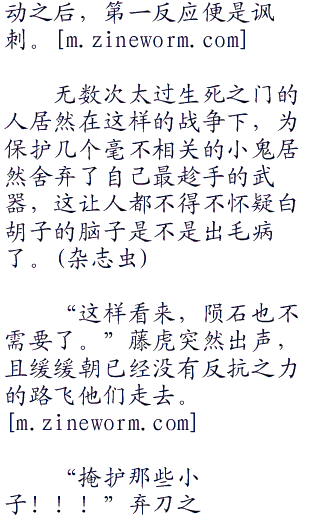 动之后，第一反应便是讽
刺。[m.zineworm.com]
无数次太过生死之门的
人居然在这样的战争下，为
保护几个毫不相关的小鬼居
然舍弃了自己最趁手的武
器，这让人都不得不怀疑白
胡子的脑子是不是出毛病
了。(杂志虫)
“这样看来，陨石也不
需要了。”藤虎突然出声，
且缓缓朝已经没有反抗之力
的路飞他们走去。
[m.zineworm.com]
“掩护那些小
子！！！”弃刀之